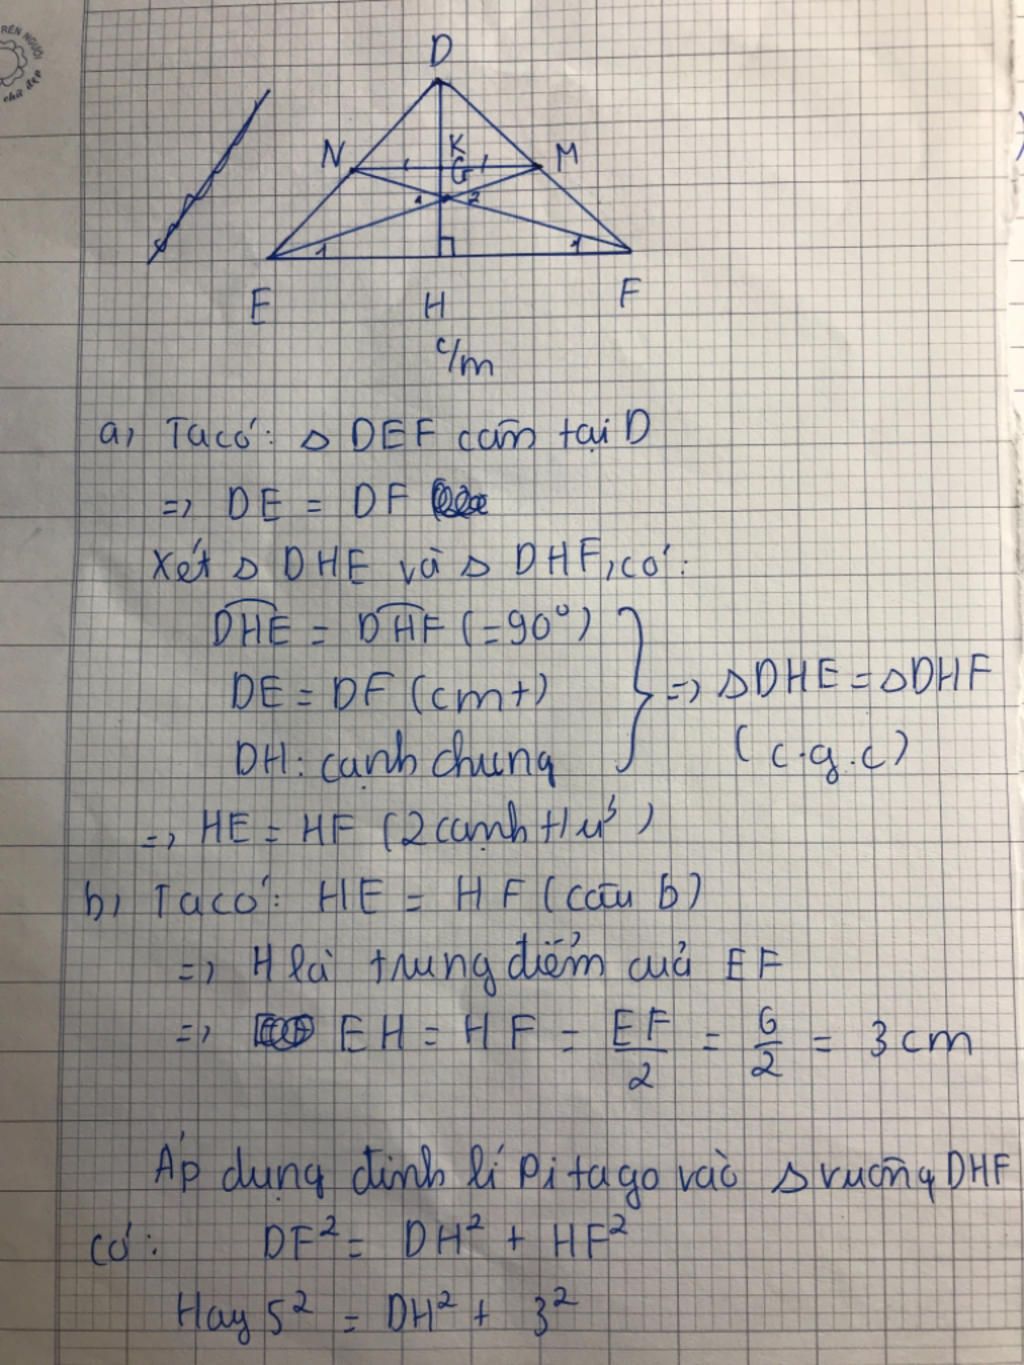 RÈN NGƯỜI
chữ đẹp
D
N K M
G
1 2
1 1
E H F
c/m
a, Ta có: Δ DEF cân tại D
=> DE = DF
Xét Δ DHE và Δ DHF, có:
DHE = DHF (= 90°)
DE = DF (cmt)
DH: cạnh chung
=> Δ DHE = Δ DHF
(c.g.c)
=> HE = HF (2 cạnh t/ứ)
b, Ta có: HE = HF (câu b)
=> H là trung điểm của EF
=> EH = HF = EF/2 = 6/2 = 3 cm
Áp dụng định lí Pitago vào Δ vuông DHF
có: DF² = DH² + HF²
Hay 5² = DH² + 3²